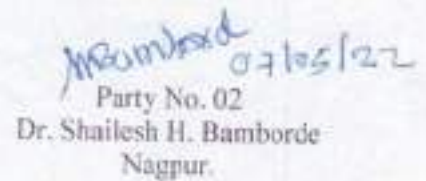 07/05/22
Party No. 02
Dr. Shailesh H. Bamborde
Nagpur.